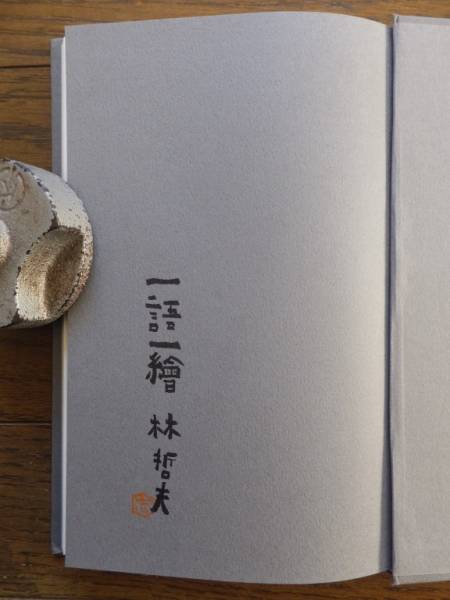 一語一繪 林哲夫